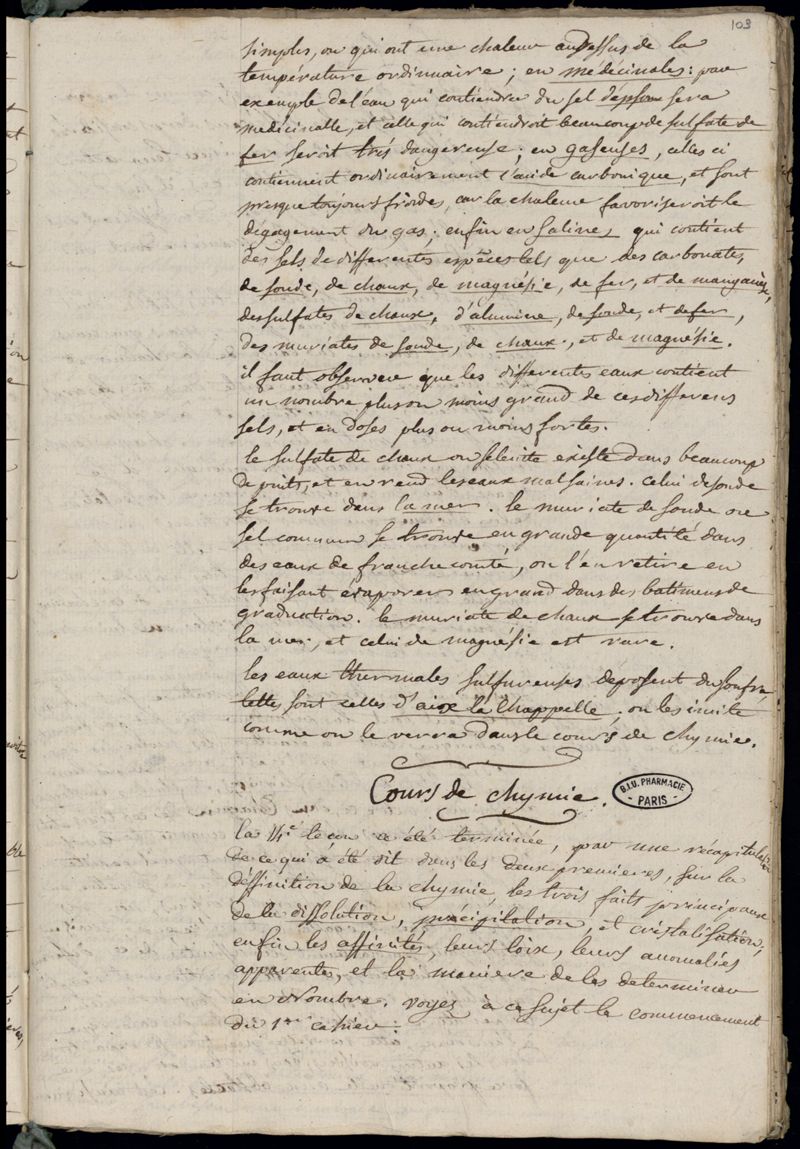 103
simples, ou qui ont une chaleur audessus de la
température ordinnaire ; en médécinales : par
exemple de l'eau qui contiendra du sel d'epsom sera
medécinalle, et celle qui contiendroit beaucoup de sulfate de
fer seroit très dangereuse ; en gaseuses, celles ci
contiennent ordinairement l'acide carbonique, et sont
presque toujours froides, car la chaleur favoriseroit le
dégagement du gas ; enfin en salines qui contient
des sels de differentes espèces tels que des carbonates
de soude, de chaux, de magnésie, de fer, et de manganèse,
des sulfates de chaux, d'alumine, de soude, et de fer,
des muriates de soude, de chaux, et de magnésie.
il faut observer que les differentes eaux contient
un nombre plus ou moins grand de ces differens
sels, et en doses plus ou moins fortes.
le sulfate de chaux ou sélénite existe dans beaucoup
de puits, et en rend les eaux malsaines. celui de soude
se trouve dans la mer. le muriate de soude ou
sel commun se trouve en grande quantité dans
des eaux de franche comté, on l'en retire en
les faisant évaporer en grand dans des batimens de
graduation. le muriate de chaux se trouve dans
la mer, et celui de magnésie est rare.
les eaux thermales sulfureuses déposent du soufre,
telles sont celles d'aix la Chappelle, on les imite
comme on le verra dans le cours de chymie.
Cours de chymie.
B.I.U. PHARMACIE
PARIS
La 14e leçon a été terminée, par une récapitulation
de ce qui a été dit dans les deux premieres, sur la
déffinition de la chymie, les trois faits principaux
de la dissolution, précipitation, et cristalisation,
enfin les affinités, leurs loix, leurs anomalies
apparentes, et la maniere de les determiner
en nombre. voyez à ce sujet le commencement
du 1er cahier.